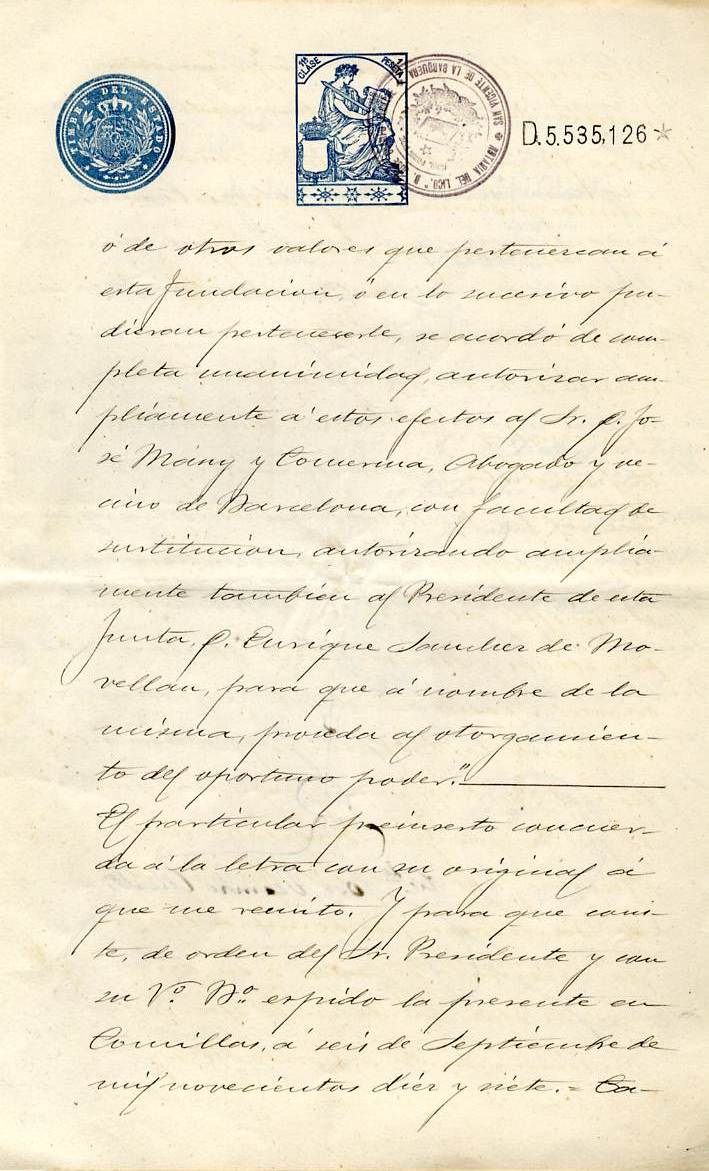 TIMBRE DEL ESTADO
11ª CLASE
1 PESETA
NOTARIA DEL LICDO. D.
SAN VICENTE DE LA BARQUERA
D.5.535,126
ó de otros valores que pertenezcan á
esta Fundacion, ó en lo sucesivo pu-
dieran pertenecerle, se acordó de com-
pleta unanimidad, autorizar am-
pliamente á estos efectos al Sr. D. Jo-
sé Mány y Comerma, Abogado y ve-
cino de Barcelona, con facultad de
sustitucion, autorizando amplia-
mente tambien al Presidente de esta
Junta, D. Enrique Sanchez de Mo-
vellan, para que á nombre de la
misma, proceda al otorgamien-
to del oportuno poder."
El particular preinserto concuer-
da á la letra con su original á
que me remito. Y para que cons-
te, de orden del Sr. Presidente y con
su Vº. Bº. expido la presente en
Comillas, á seis de Septiembre de
mil novecientos diez y siete. = Ca-